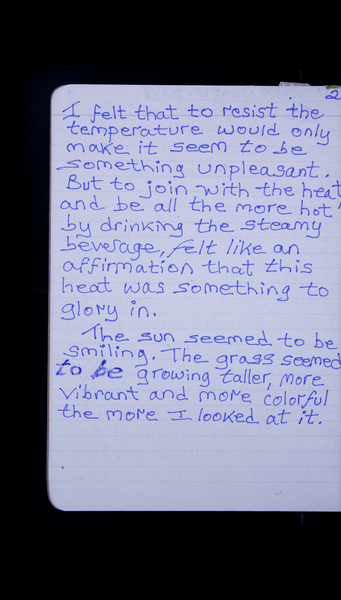 2
I felt that to resist the
temperature would only
make it seem to be
something unpleasant.
But to join with the heat
and be all the more hot
by drinking the steamy
beverage, felt like an
affirmation that this
heat was something to
glory in.
The sun seemed to be
smiling. The grass seemed
to be growing taller, more
vibrant and more colorful
the more I looked at it.